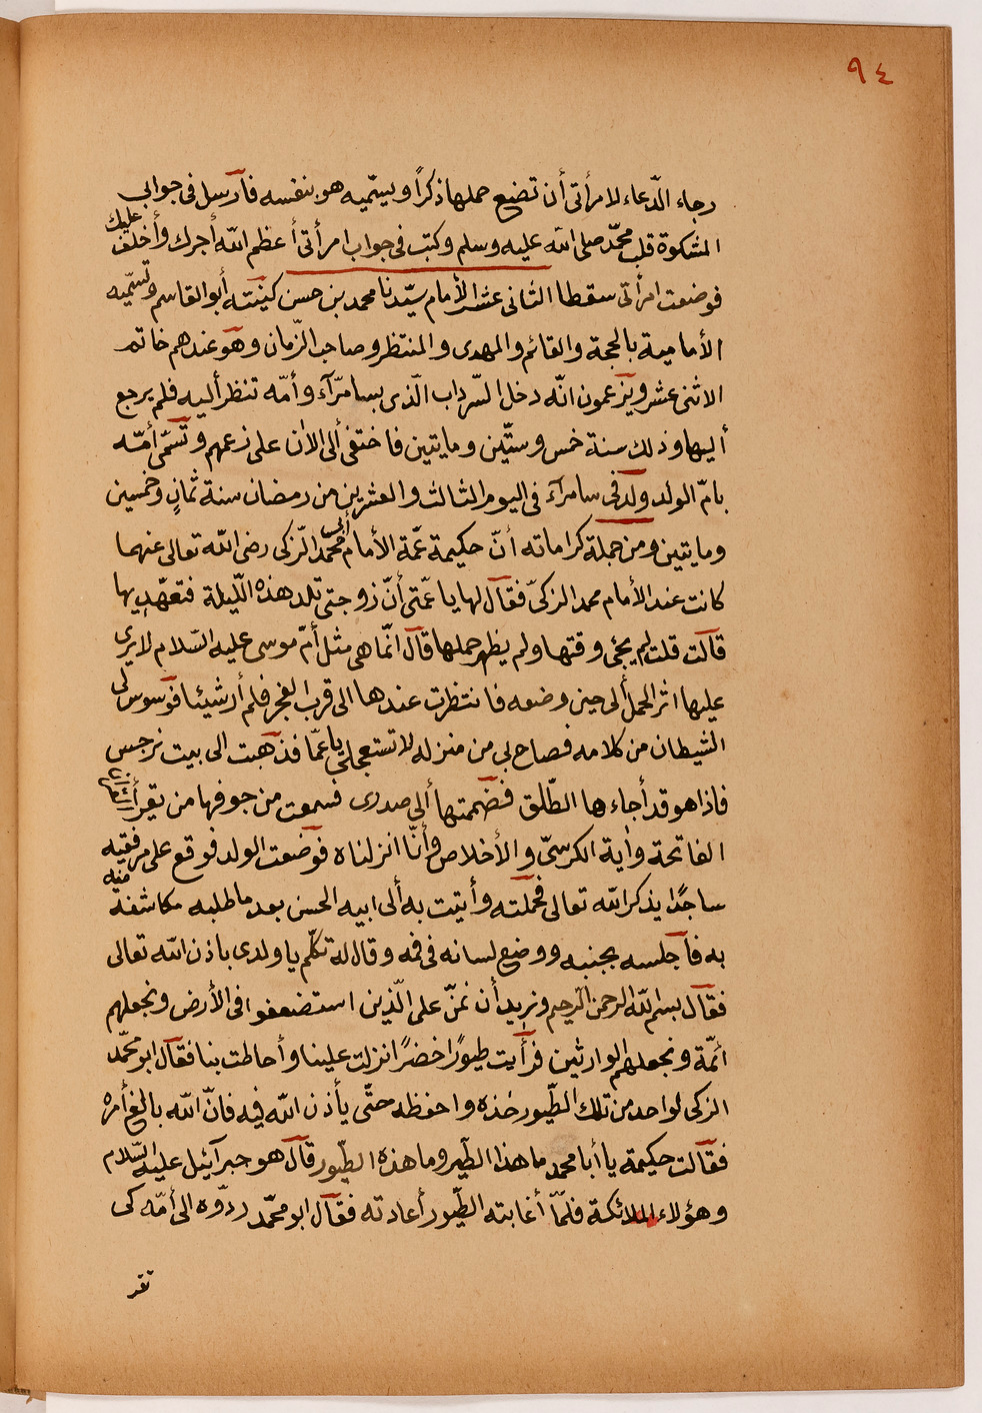 ٩٤
رجاء الدّعاء لامرأتى أن تضع حملها ذكراً ويسمّيه هو بنفسه فأرسل فى جوابى
المشكوة قلب محمّد صلى الله عليه وسلم وكتب فى جواب امرأتى أعظم الله أجرك وأخلف عليك
فوضعت امرأتى سقطا الثانى عشر الأمام سيّدنا محمد بن حسن كنيته أبو القاسم وتسمّيه
الأمامية بالحجة والقائم والمهدى والمنتظر وصاحب الزّمان وهو عندهم خاتم
الاثنى عشر ويزعمون انّه دخل السّرداب الّذى بسامرّآء وأمّه تنظر أليه فلم يرجع
أليها وذلك سنة خمس وستّين ومايتين فاختفى ألى الأن على زعمهم وتسمّى أمّه
بامّ الولد ولد فى سامرآء فى اليوم الثالث والعشرين من رمضان سنة ثمانٍ وخمسين
ومايتين ومن جملة كراماته أنّ حكيمة عمّة الأمام أبى محمّد الزّكى رضى الله تعالى عنهما
كانت عند الأمام محمد الزكىّ فقال لها يا عمّتى أنّ زوجتى تلد هذه اللّيلة فتعهّد بها
قالت قلت لم يجئ وقتها ولم يظهر حملها قال انّما هى مثل أمّ موسى عليه السّلام لا يرى
عليها اثر الحمل ألى حين وضعه فانتظرت عندها الى قرب الفجر فلم أر شيئا فوسوس لى
الشيطان من كلامه فصاح بى من منزله لا تستعجلى يا عمّا فذهبت الى بيت نرجس
فاذا هو قد أجاءها الطّلق فضممتها ألى صدرى فسمعت من جوفها من يقرأ
الفاتحة وأية الكرسىّ والأخلاص وأنّا انزلناه فوضعت الولد فوقع على مرفقيه
ساجدًا يذكر الله تعالى فحملته وأتيت به ألى ابيه الحسن بعد ما طلبه مكاشفة منه
به فأجلسه بجنبه ووضع لسانه فى فمه وقال له تكلّم يا ولدى باذن الله تعالى
فقال بسم الله الرحمن الرحيم ونريد أن نمنّ على الّذين استضعفوا فى الأرض ونجعلهم
ائمّة ونجعلهم الوارثين فرأيت طيورًا خضرًا نزلت علينا وأحاطت بنا فقال ابو محمّد
الزكى لواحد من تلك الطّيور خذه واحفظه حتّى يأذن الله فيه فانّ الله بالغ أمره
فقالت حكيمة يا أبا محمد ما هذا الطّير وما هذه الطّيور قال هو جبرآئيل عليه السّلام
وهؤلاء الملائكة فلمّا أغابته الطّيور أعادته فقال ابو محمّد ردّوه الى أمّه كى
تقر